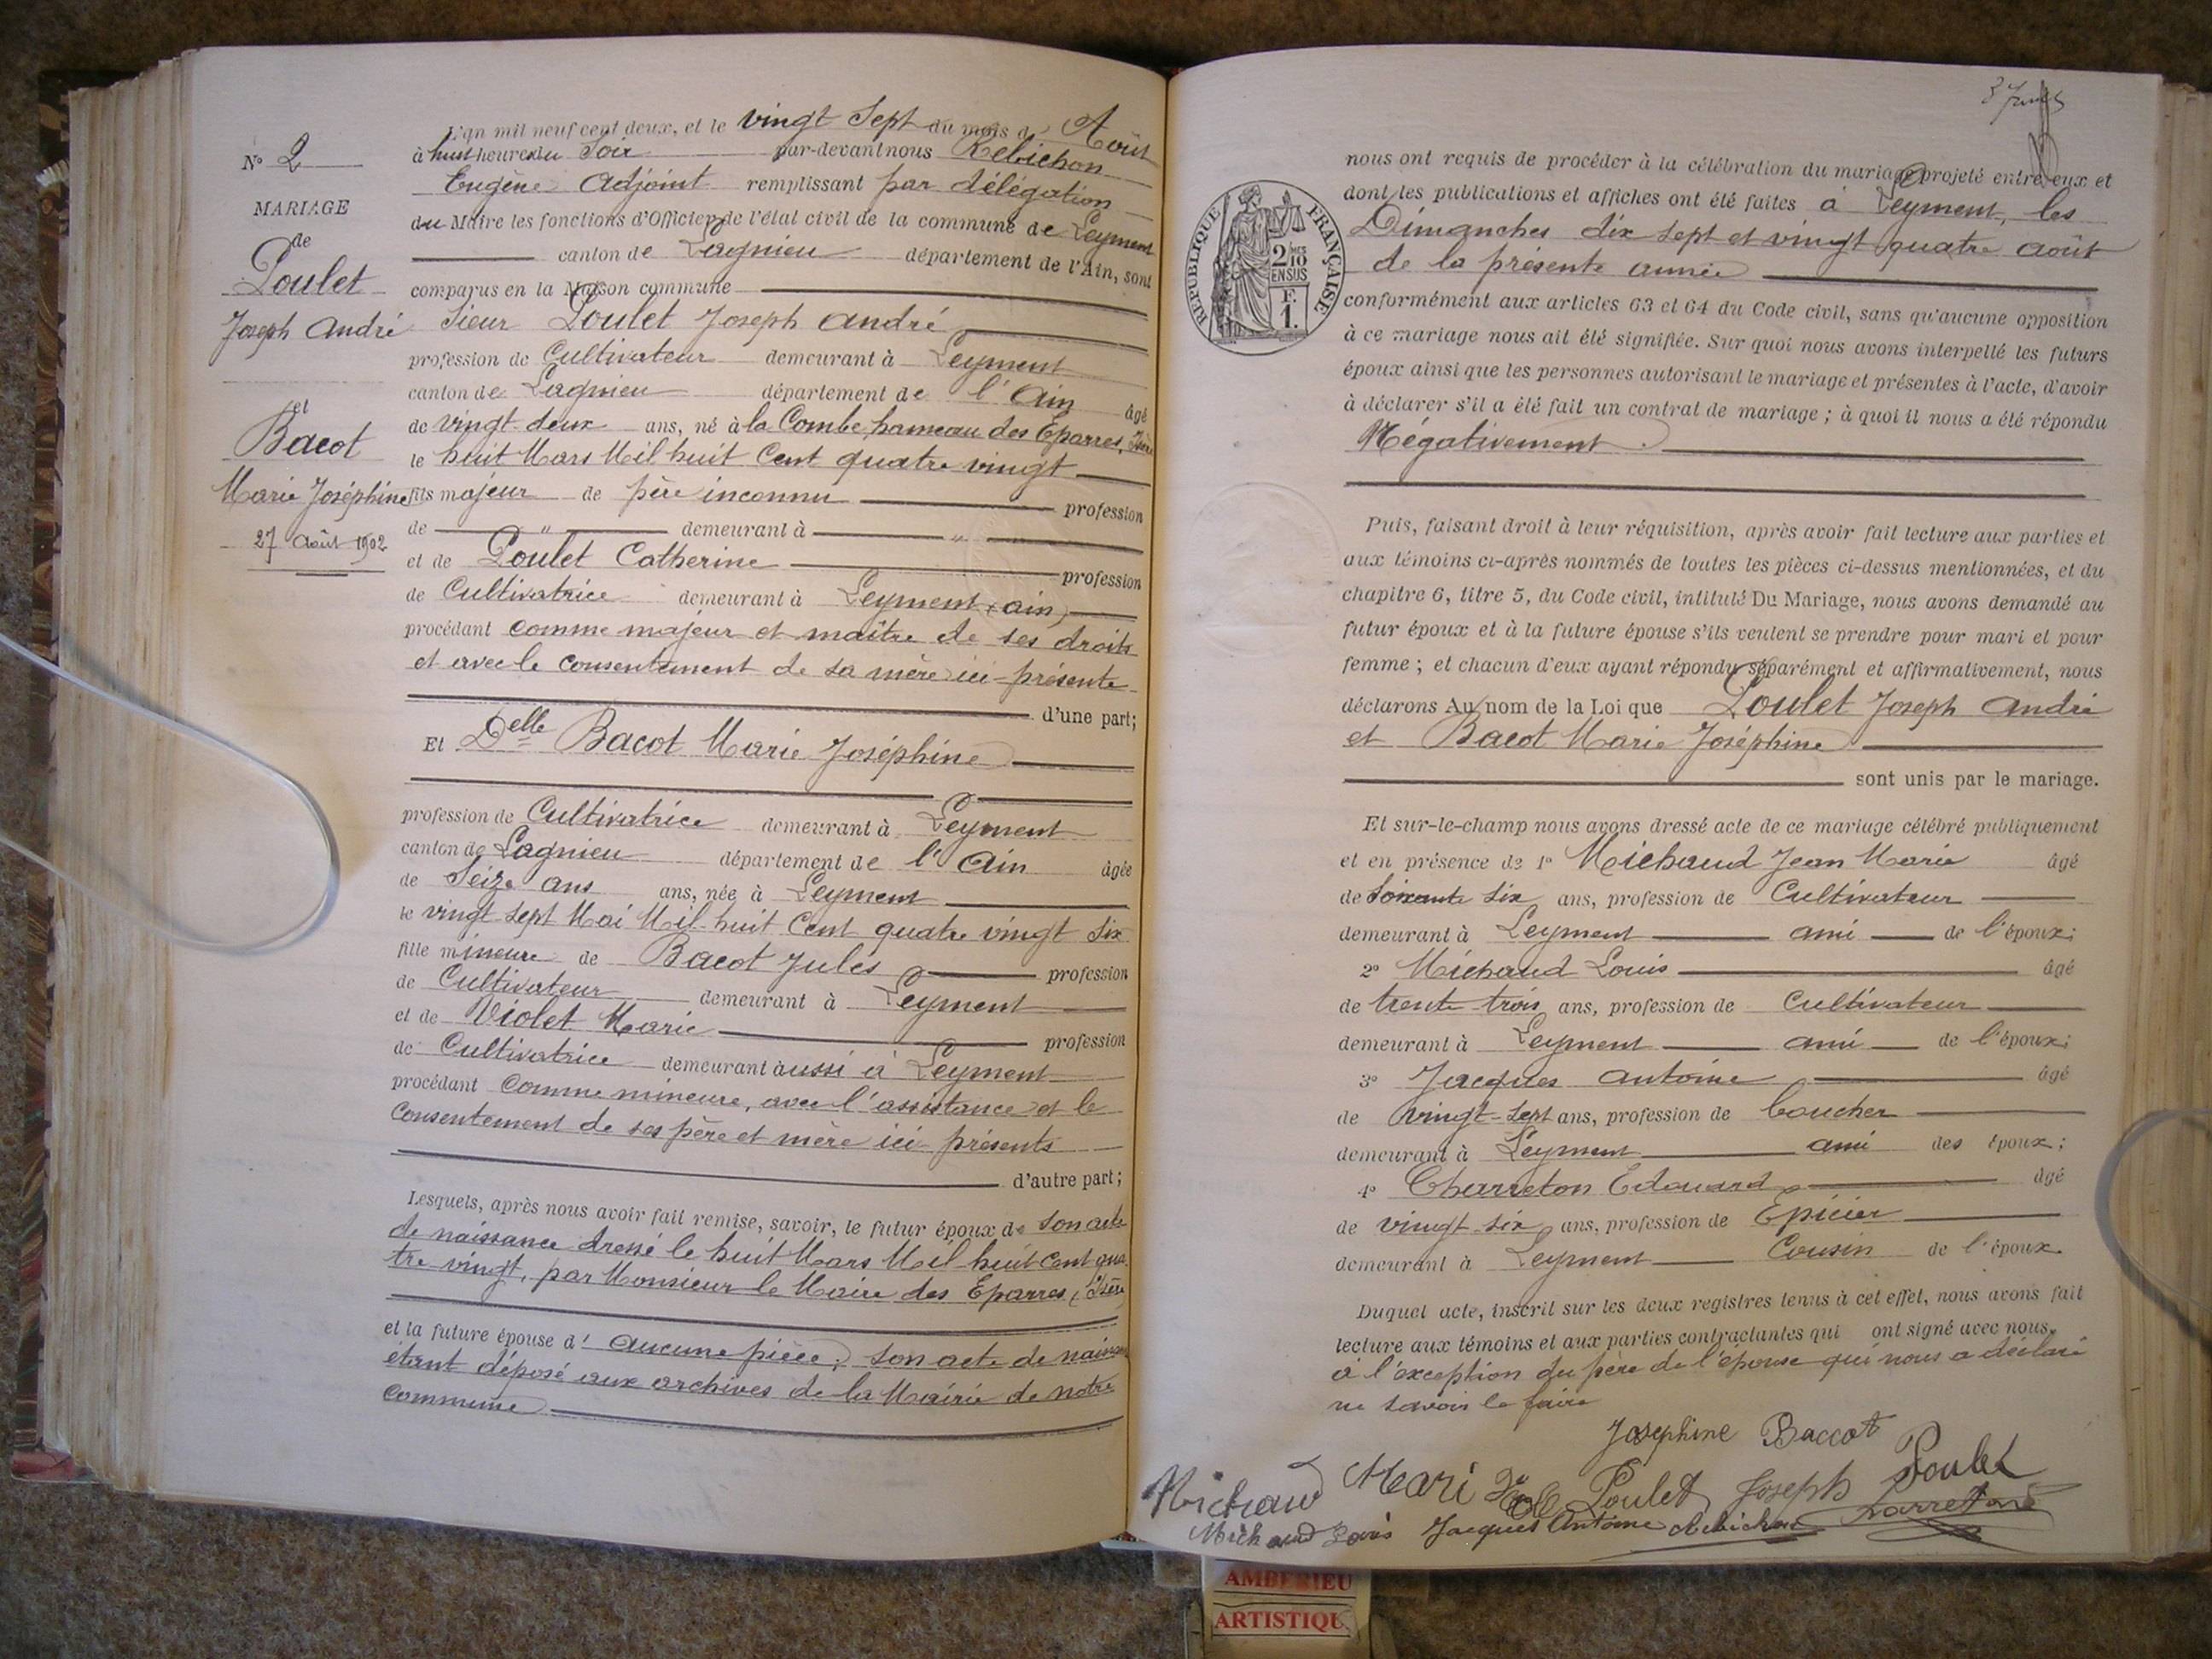 N° 2
MARIAGE
de
Poulet
Joseph André
et
Bacot
Marie Joséphine
27 Août 1902
L'an mil neuf cent deux, et le vingt sept du mois d' Août
à huit heures du Soir par-devant nous Rebichon
Eugène Adjoint remplissant par délégation
du Maire les fonctions d'Officier de l'état civil de la commune de Leyment
canton de Lagnieu département de l'Ain, sont
comparus en la Maison commune
Sieur Poulet Joseph André
profession de Cultivateur demeurant à Leyment
canton de Lagnieu département de l'Ain âgé
de vingt deux ans, né à la Combe, hameau des Eparres, Isère
le huit Mars Mil huit Cent quatre vingt
fils majeur de père inconnu profession
de " demeurant à "
et de Poulet Catherine profession
de Cultivatrice demeurant à Leyment (ain)
procédant comme majeur et maître de ses droits
et avec le consentement de sa mère ici présente
d'une part;
Et Delle Bacot Marie Joséphine
profession de Cultivatrice demeurant à Leyment
canton de Lagnieu département de l'Ain âgée
de Seize ans ans, née à Leyment
le vingt-sept Mai Mil-huit Cent quatre vingt six
fille mineure de Bacot Jules profession
de Cultivateur demeurant à Leyment
et de Violet Marie profession
de Cultivatrice demeurant aussi à Leyment
procédant comme mineure, avec l'assistance et le
consentement de ses père et mère ici présents
d'autre part;
Lesquels, après nous avoir fait remise, savoir, le futur époux de son acte
de naissance dressé le huit Mars Mil-huit cent qua-
tre vingt, par Monsieur le Maire des Eparres, (Isère)
et la future épouse d' aucune pièce; son acte de naissance
étant déposé aux archives de la Mairie de notre
commune
nous ont requis de procéder à la célébration du mariage projeté entre eux et
dont les publications et affiches ont été faites à Leyment, les
Dimanches dix sept et vingt quatre août
de la présente année
REPUBLIQUE FRANÇAISE
2 MES
10
EN SUS
F.
1.
conformément aux articles 63 et 64 du Code civil, sans qu'aucune opposition
à ce mariage nous ait été signifiée. Sur quoi nous avons interpellé les futurs
époux ainsi que les personnes autorisant le mariage et présentes à l'acte, d'avoir
à déclarer s'il a été fait un contrat de mariage; à quoi il nous a été répondu
Négativement.
Puis, faisant droit à leur réquisition, après avoir fait lecture aux parties et
aux témoins ci-après nommés de toutes les pièces ci-dessus mentionnées, et du
chapitre 6, titre 5, du Code civil, intitulé Du Mariage, nous avons demandé au
futur époux et à la future épouse s'ils veulent se prendre pour mari et pour
femme; et chacun d'eux ayant répondu séparément et affirmativement, nous
déclarons Au nom de la Loi que Poulet Joseph André
et Bacot Marie Joséphine
sont unis par le mariage.
Et sur-le-champ nous avons dressé acte de ce mariage célébré publiquement
et en présence de 1° Michaud Jean Marie âgé
de Soixante six ans, profession de Cultivateur
demeurant à Leyment ami de l'époux;
2° Michaud Louis âgé
de trente trois ans, profession de Cultivateur
demeurant à Leyment ami de l'époux;
3° Jacques Antoine âgé
de vingt-sept ans, profession de boucher
demeurant à Leyment ami des époux;
4° Charreton Edouard âgé
de vingt-six ans, profession de Epicier
demeurant à Leyment Cousin de l'époux
Duquel acte, inscrit sur les deux registres tenus à cet effet, nous avons fait
lecture aux témoins et aux parties contractantes qui ont signé avec nous.
à l'exception du père de l'épouse qui nous a déclaré
ne savoir le faire
Josephine Baccot
Michaud Mari Poulet Joseph Poulet
Michaud Louis Jacques Antoine Rebichon Charreton
AMBERIEU
ARTISTIQU